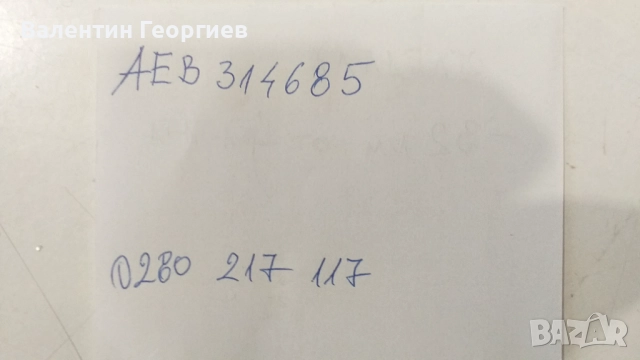 Валентин Георгиев
AEB 314685
0280 217 117
BAZAR